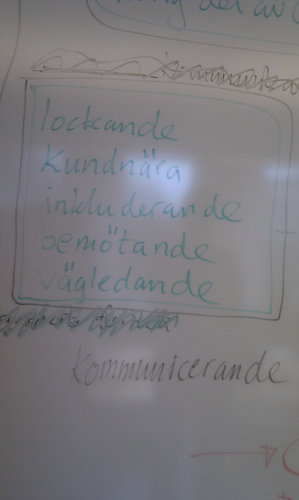 lockande
Kundnära
inkluderande
bemötande
vägledande
Kommunicerande